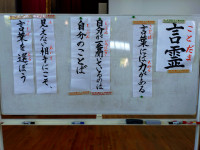 ことだま
言霊
言葉には力がある
自分が一番聞いているのは
自分のことば
見えない相手にこそ、
言葉を選ぼう